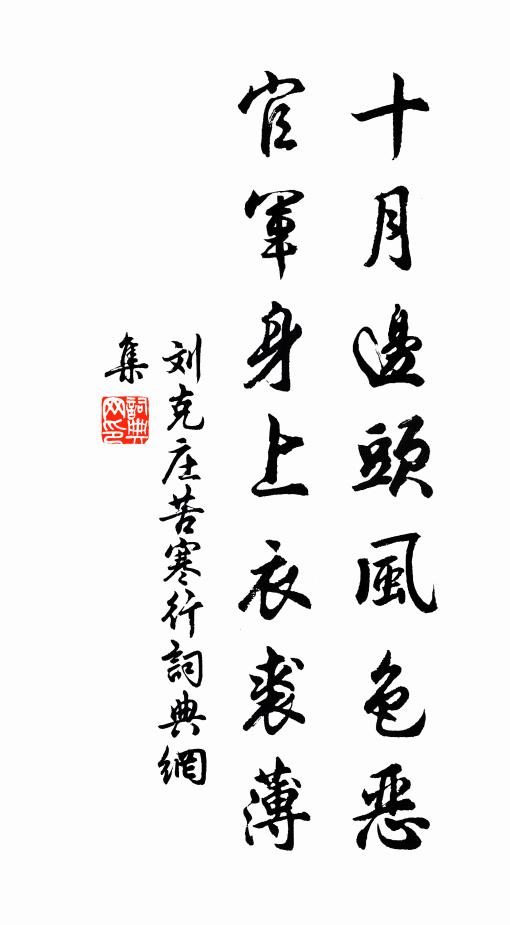 十月邊頭風色惡
官軍身上衣裘薄
刘克庄苦寒行詞典網
集
詞典網印